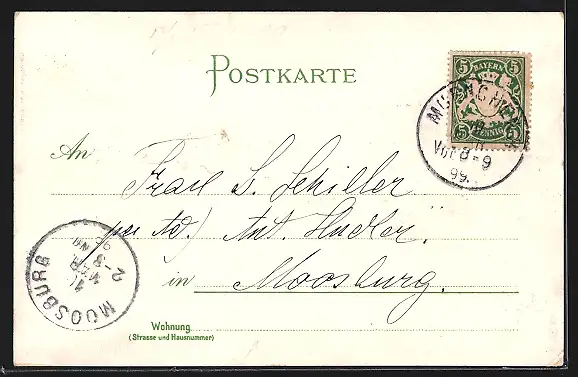 POSTKARTE
5 BAYERN 5
5 PFENNIG 5
MUENCHEN
Vor. 8-9
99.
An
Frau S. Schiller
per Ad.) Ant. Hudler.
in Moosburg.
MOOSBURG
2-3
Wohnung
(Strasse und Hausnummer)